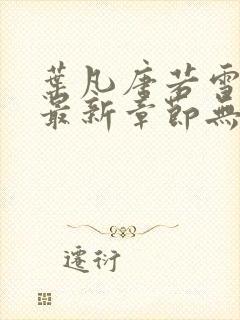 葉凡唐若雪
最新章節無
遷衍